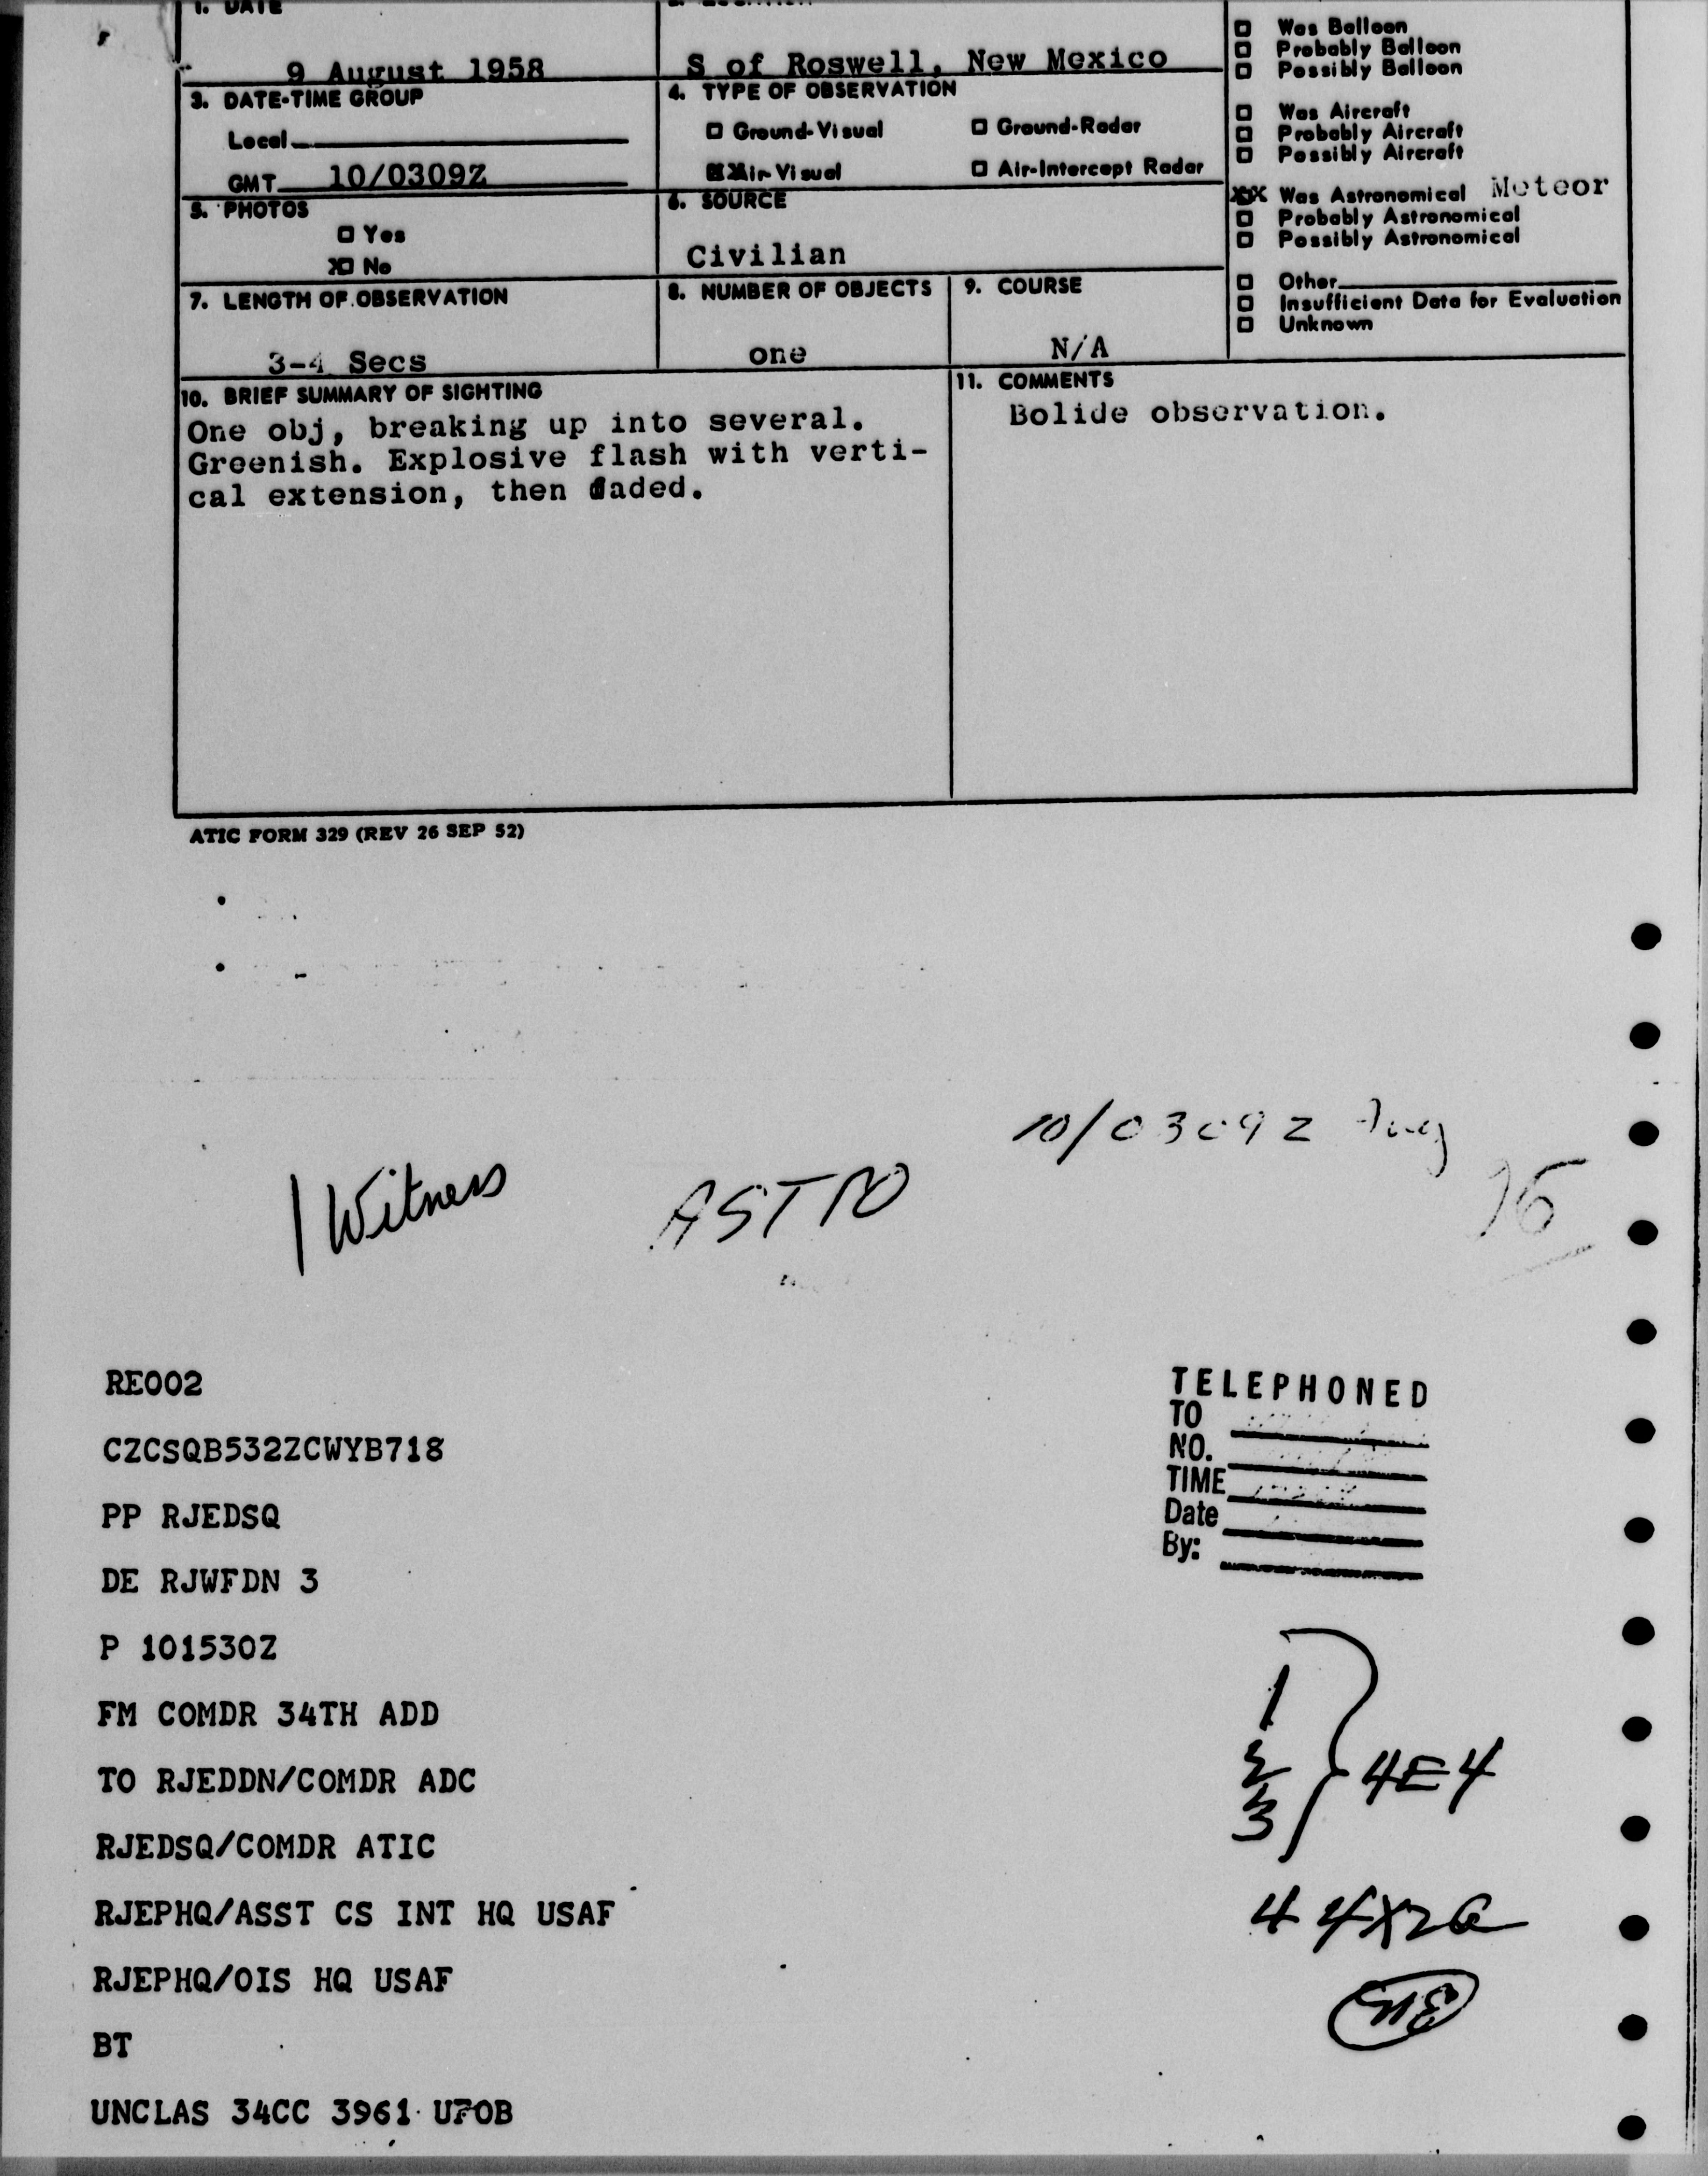 1. DATE
9 August 1958
S of Roswell, New Mexico
3. DATE-TIME GROUP
Local
GMT 10/0309Z
4. TYPE OF OBSERVATION
Ground-Visual
Ground-Radar
XX Air-Visual
Air-Intercept Radar
5. PHOTOS
Yes
X No
6. SOURCE
Civilian
7. LENGTH OF OBSERVATION
3-4 Secs
8. NUMBER OF OBJECTS
one
9. COURSE
N/A
Was Balloon
Probably Balloon
Possibly Balloon
Was Aircraft
Probably Aircraft
Possibly Aircraft
XX Was Astronomical Meteor
Probably Astronomical
Possibly Astronomical
Other
Insufficient Data for Evaluation
Unknown
10. BRIEF SUMMARY OF SIGHTING
One obj, breaking up into several.
Greenish. Explosive flash with verti-
cal extension, then faded.
11. COMMENTS
Bolide observation.
ATIC FORM 329 (REV 26 SEP 52)
10/0309Z Aug
1 Witness
ASTRO
RE002
CZCSQB532ZCWYB718
PP RJEDSQ
DE RJWFDN 3
P 101530Z
FM COMDR 34TH ADD
TO RJEDDN/COMDR ADC
RJEDSQ/COMDR ATIC
RJEPHQ/ASST CS INT HQ USAF
RJEPHQ/OIS HQ USAF
BT
UNCLAS 34CC 3961 UFOB
TELEPHONED
TO
NO.
TIME
Date
By:
1
2
3
4E4